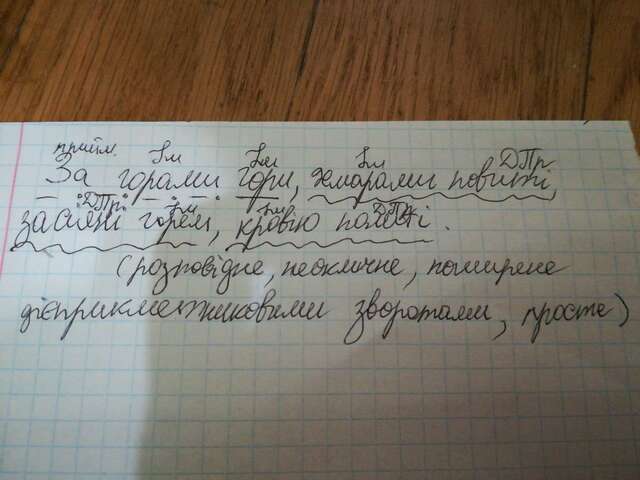 прийм. Ім Ім Ім ДПр
За горами гори, хмарами повиті,
ДПр Ім Ім ДПр
засіяні горем, кровію политі.
(розповідне, неоклично, поширене
дієприкметниковими зворотами, просте)